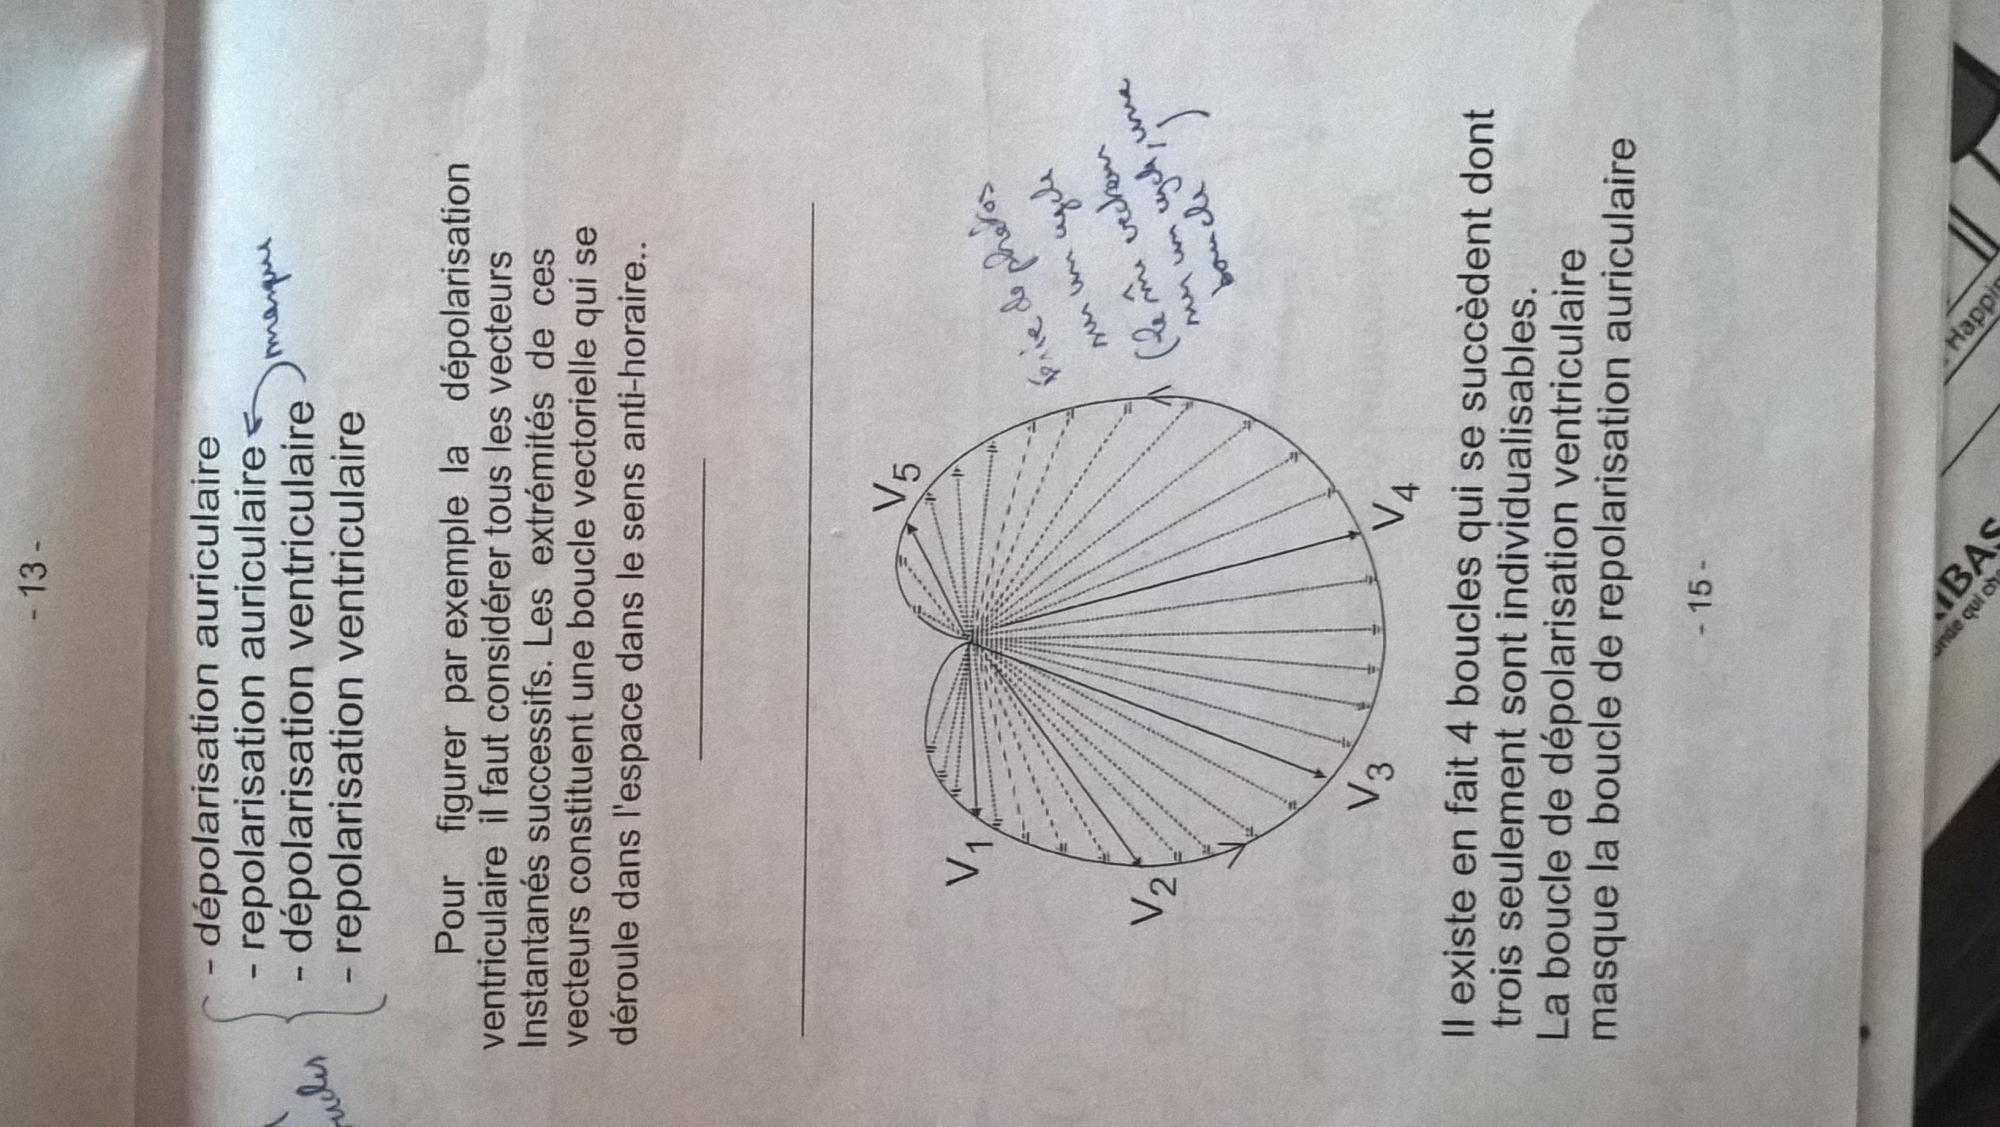 - 13 -
- dépolarisation auriculaire
- repolarisation auriculaire
- dépolarisation ventriculaire
masque
- repolarisation ventriculaire
Pour figurer par exemple la dépolarisation
ventriculaire il faut considérer tous les vecteurs
Instantanés successifs. Les extrémités de ces
vecteurs constituent une boucle vectorielle qui se
déroule dans l'espace dans le sens anti-horaire..
V1
V2
V3
V4
V5
de photos
sur un cycle
(le vecteur
sur un cycle, une
boucle)
Il existe en fait 4 boucles qui se succèdent dont
trois seulement sont individualisables.
La boucle de dépolarisation ventriculaire
masque la boucle de repolarisation auriculaire
- 15 -
Happin
IBAS